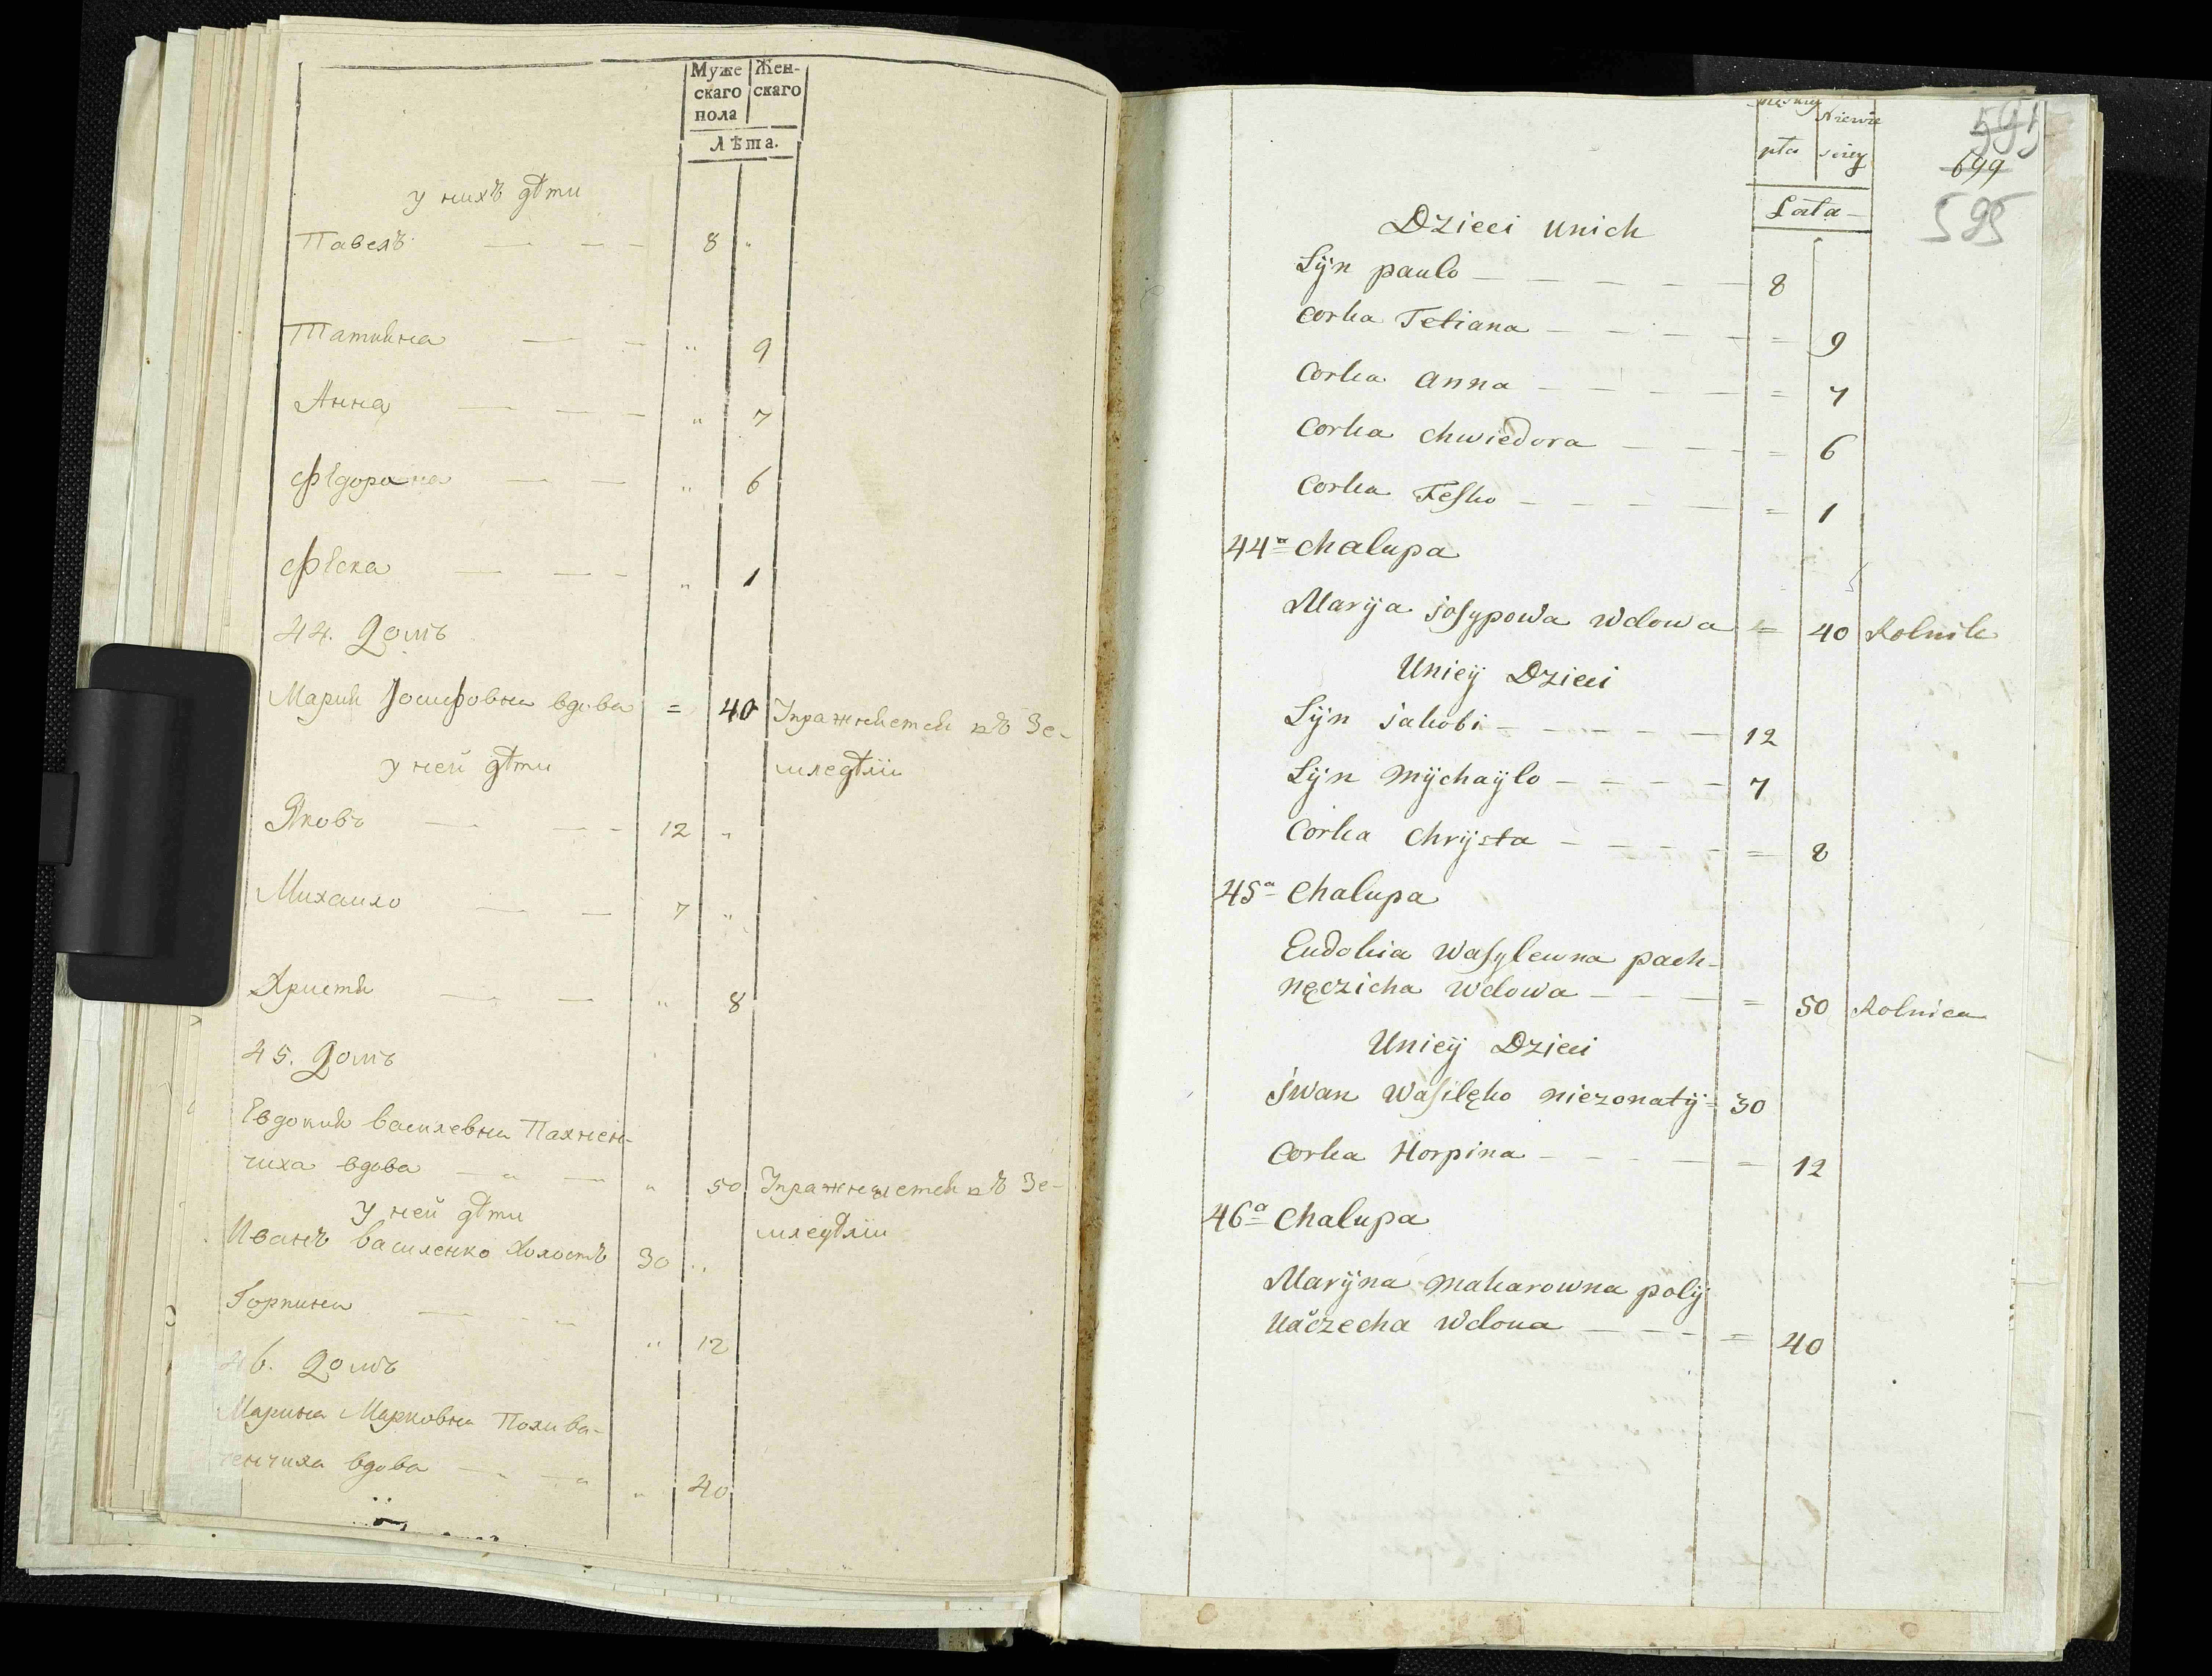 Муже Жен-
скаго скаго
пола
Лѣта.
у нихъ дѣти
Павелъ — — — 8 "
Татияна — — " 9
Анна — — — " 7
Ѳедорана — — " 6
Ѳеска — — — " 1
44. Домъ
Мария Іосифовна вдова = 40 Упражняется въ Зе-
у ней дѣти мледѣлiи
Яковъ — — — 12 "
Михаило — — 7 "
Христя — — " 8
45. Домъ
Евдокия василевна Пахнен-
чиха вдова — " — " 50 Упражняется въ Зе-
у ней дѣти мледѣлiи
Иванъ василенко холостъ 30 "
Горпина — — — " 12
46. Домъ
Марина Марковна
вдова — " — " " 40
Niewie
pta sciey
Lata —
591
699
595
Dzieci unich
Syn paulo — — — — — 8
Corka Tetiana — — — — = 9
Corka anna — — — — = 7
Corka chwiedora — — — = 6
Corka Fesko — — — — = 1
44ª chalupa
Maryja josypowa wdowa = 40 Rolnik
Unieÿ Dzieci
Sÿn jakobi — — — — 12
Sÿn Mÿchaÿlo — — — — 7
Corka Chrysta — — — — = 8
45ª Chalupa
Eudokia Wasylewna pach-
nęczicha wdowa — — — = 50 Rolnica
Unieÿ Dzieci
jwan Wasilęko niezonatÿ = 30
Corka Horpina — — — — = 12
46ª Chalupa
Marÿna Makarowna polÿ
waczecha wdoua — — — = 40